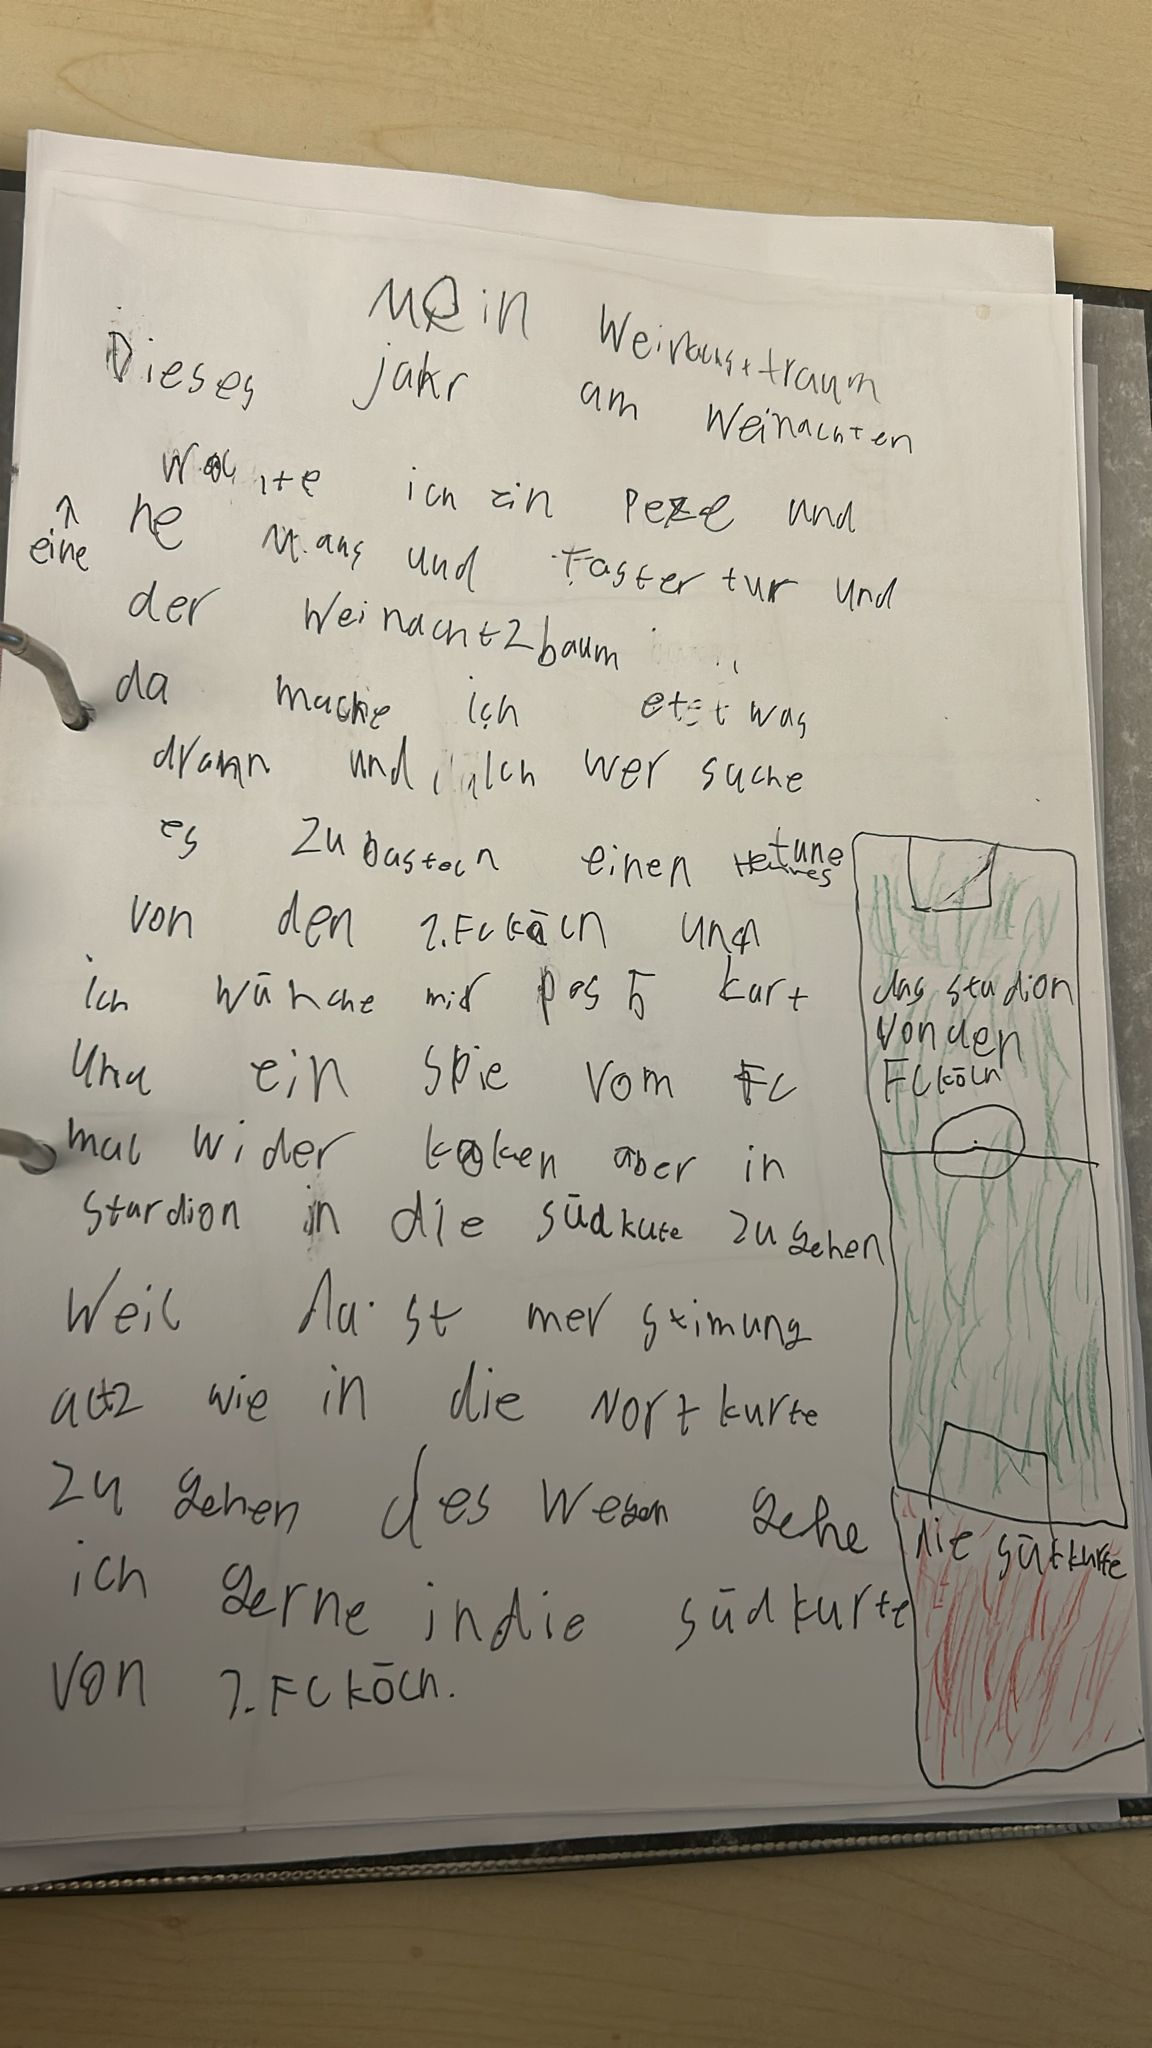 Mein Weinachstraum
Dieses jahr am Weinachten
wollte ich ein Peze und
eine
ne Maus und Tastertur und
der Weinachtzbaum
da mache ich etstwas
drann und ich wer suche
es zu basteln einen
von den 1.FC köln und
ich wünche mir pes 5 kart
und ein Spie vom FC
mal wider koken aber in
stardion in die südkute zu gehen
Weil da ist mer stimung
altz wie in die Nortkurte
zu gehen des wegen gehe
ich gerne in die südkurte
von 1.FC köln.
das stadion
von den
FC köln
die sütkurte